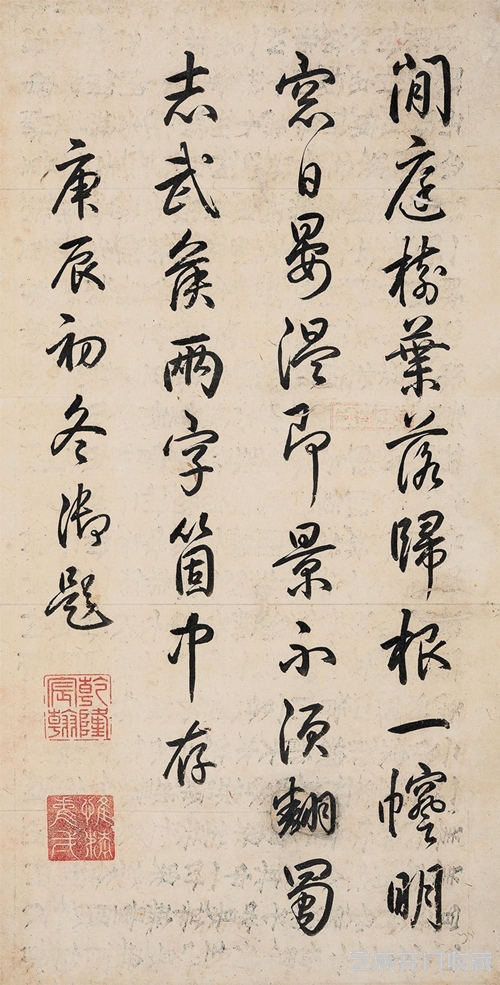 閒庭樹葉落歸根一明
窓日晏溫即景不須翻蜀
志武侯兩字箇中存
庚辰初冬御題
乾隆宸翰
惟精惟一